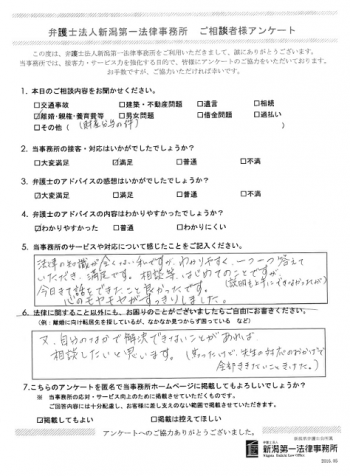 弁護士法人新潟第一法律事務所　ご相談者様アンケート
この度は、弁護士法人新潟第一法律事務所をご利用いただきまして、誠にありがとうございます。
当事務所では、接客力・サービス力を強化する目的で、皆様にアンケートのご協力をいただいております。
お手数ですが、ご協力いただければ幸いです。
1．本日のご相談内容をお聞かせください。
□交通事故　□建築・不動産問題　□遺言　□相続
☑離婚・親権・養育費等　□男女問題　□借金問題　□過払い
□その他（財産分与の件）
2．当事務所の接客・対応はいかがでしたでしょうか？
□大変満足　☑満足　□普通　□不満
3．弁護士のアドバイスの感想はいかがでしたでしょうか？
☑大変満足　□満足　□普通　□不満
4．弁護士のアドバイスの内容はわかりやすかったでしょうか？
☑わかりやすかった　□普通　□わかりにくい
5．当事務所のサービスや対応について感じたことをご記入ください。
法律の知識が全くない私ですが、わかりやすく、一つ一つ答えて
いただき、満足です。相談等、はじめてのことですが、
今日まで話をできたこと良かったです。（説明も上手にできなかったが）
心のモヤモヤがすっきりしました。
6．法律に関すること以外にも、お困りのことがございましたらご自由にお書きください。
（例：離婚に向け転居先を探しているが、なかなか見つからず困っている　など）
又、自分の力で解決できないことがあれば、
相談したいと思います。（困ったけど、先生の対応のおかげで
全部ききたいこときけた。）
7．こちらのアンケートを匿名で当事務所ホームページに掲載してもよろしいでしょうか？
※　当事務所の応対・サービス向上のために掲載させていただくものです。
ご回答内容には十分配慮し、お客様に差し支えのない範囲で掲載させていただきます。
☑掲載してもよい　□掲載は控えてほしい
アンケートへのご協力ありがとうございました。
新潟県弁護士会所属
弁護士法人
新潟第一法律事務所
Niigata Daiichi Law Office